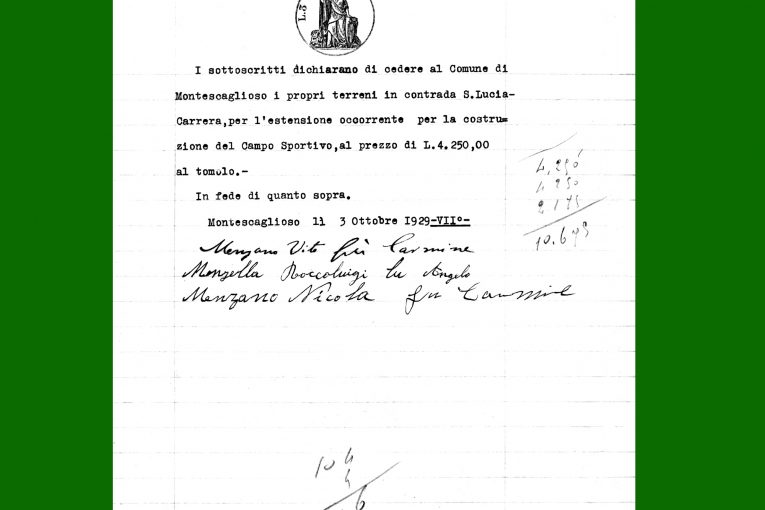 L.3
I sottoscritti dichiarano di cedere al Comune di
Montescaglioso i propri terreni in contrada S.Lucia-
Carrera,per l'estensione occorrente per la costru=
zione del Campo Sportivo,al prezzo di L.4.250,00
al tomolo.-
In fede di quanto sopra.
Montescaglioso lì 3 Ottobre I929-VII°-
Menzano Vito fu Carmine
Monzella Roccoluigi fu Angelo
Menzano Nicola fu Carmine
4,250
4 250
2 175
10.675
10 4
4
6